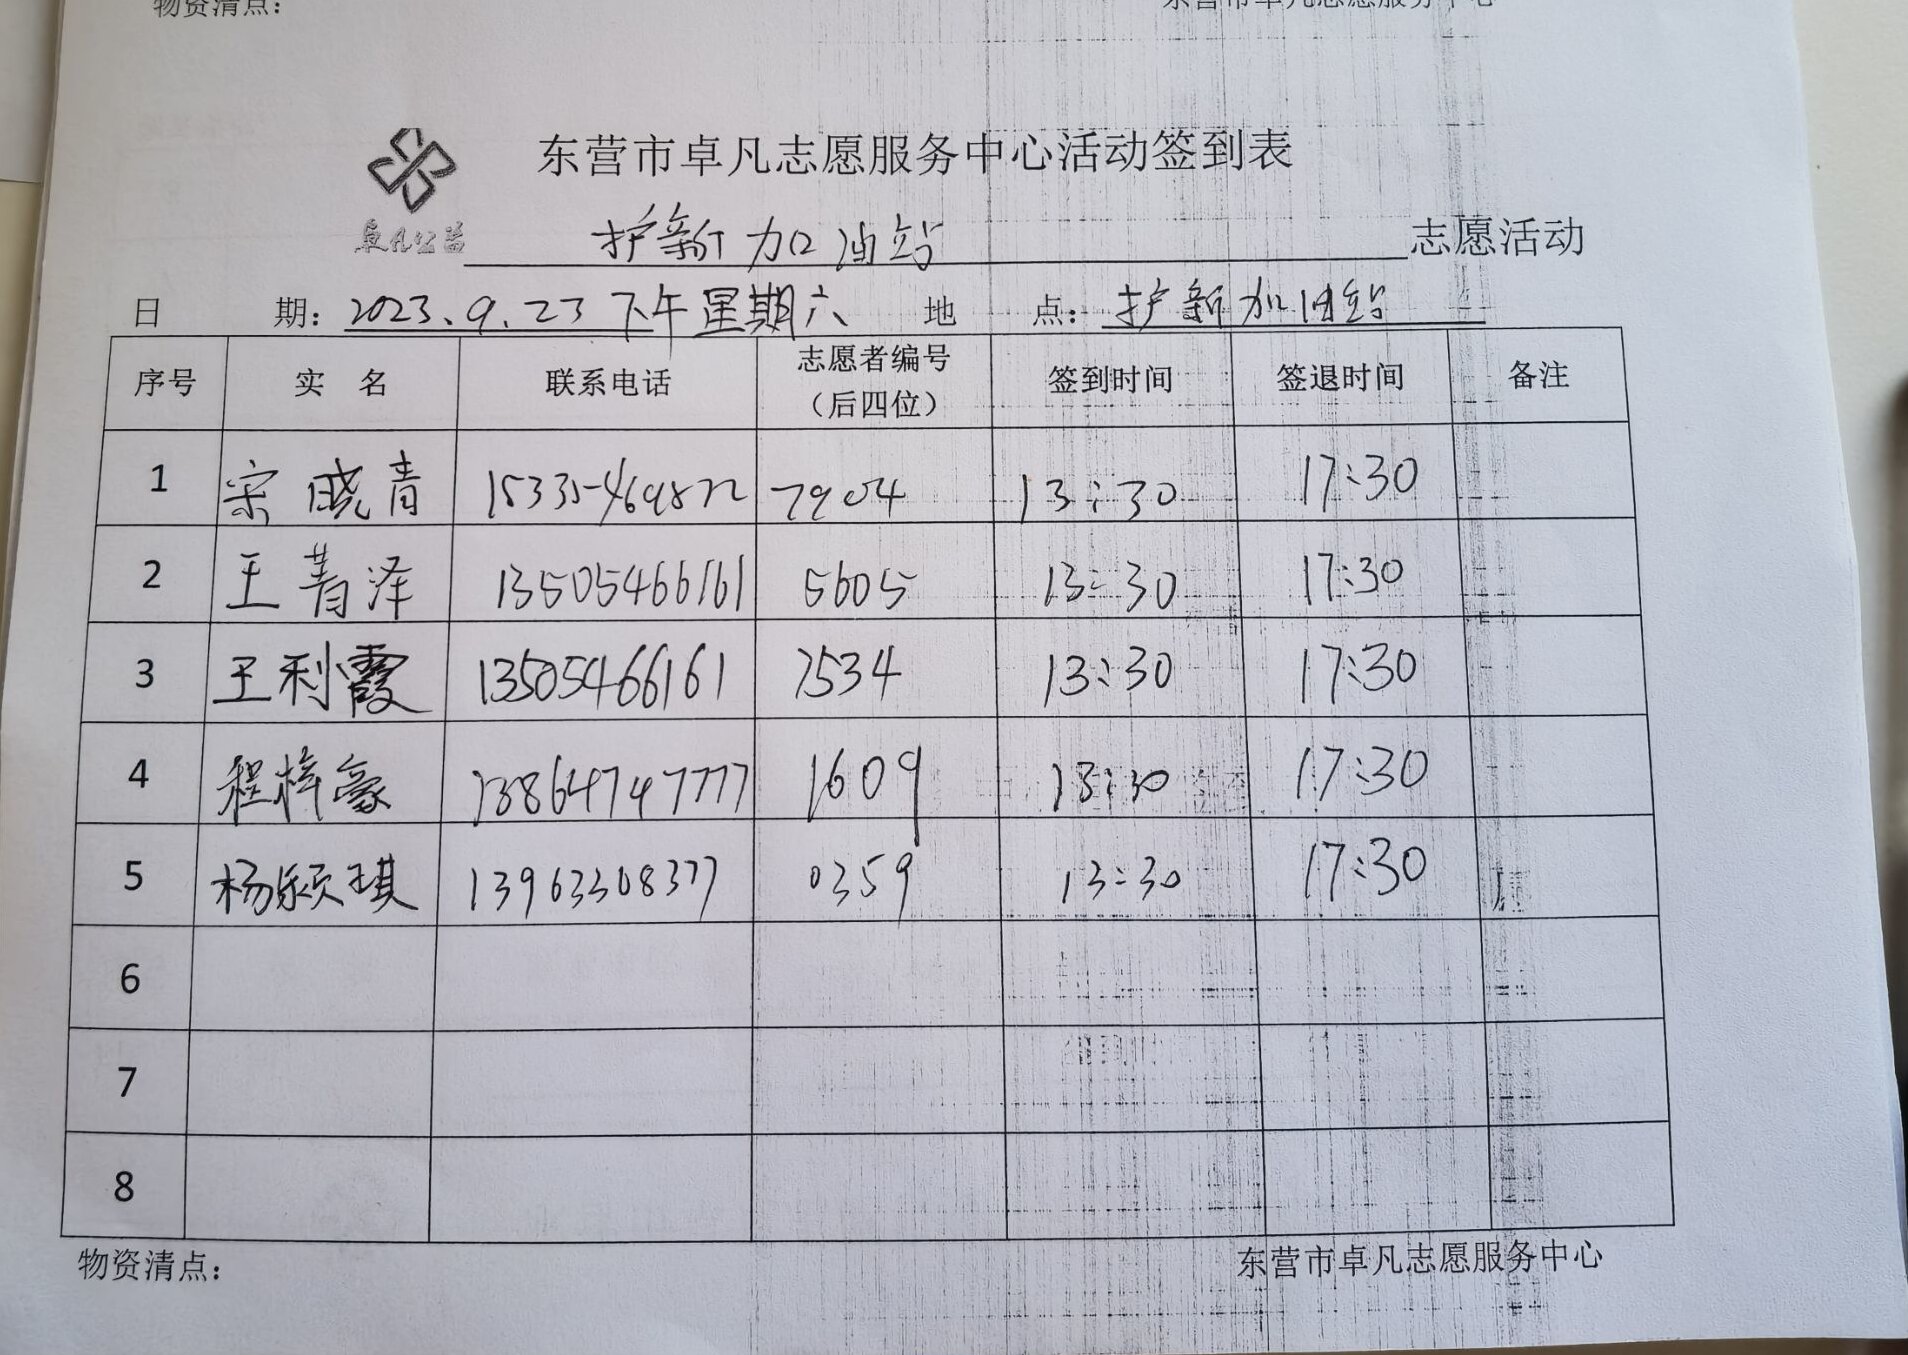 物资清点：
东营市卓凡志愿服务中心
东营市卓凡志愿服务中心活动签到表
卓凡公益
护新加油站 志愿活动
日 期：2023.9.23 下午星期六 地 点：护新加油站
序号 实 名 联系电话 志愿者编号（后四位） 签到时间 签退时间 备注
1 宋晓青 7904 13:30 17:30
2 王菁泽 13505466161 5605 13:30 17:30
3 王利霞 13505466161 7534 13:30 17:30
4 程梓豪 13864747777 1609 13:30 17:30
5 杨颍琪 13963308377 0359 13:30 17:30
6
7
8
物资清点：
东营市卓凡志愿服务中心